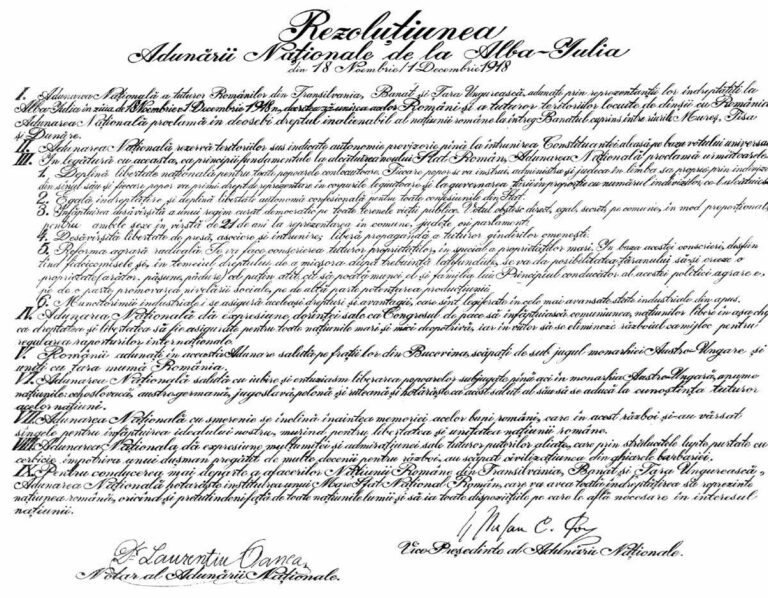 Rezoluțiunea
Adunării Naționale de la Alba-Iulia
din 18 Noembrie/1 Decembrie 1918
I. Adunarea Națională a tuturor Românilor din Transilvania, Banat și Țara Ungurească, adunați prin reprezentanții lor îndreptățiți la
Alba-Iulia în ziua de 18 Noembrie/1 Decembrie 1918, decretează unirea acelor Români și a tuturor teritoriilor locuite de dînșii cu România.
Adunarea Națională proclamă în deosebi dreptul inalienabil al națiunii române la întreg Banatul cuprins între rîurile Mureș, Tisa
și Dunăre.
II. Adunarea Națională rezervă teritoriilor sus indicate autonomie provizorie pînă la întrunirea Constituantei aleasă pe baza votului universal
III. În legătură cu aceasta, ca principii fundamentale la alcătuirea noului Stat Român, Adunarea Națională proclamă următoarele:
1. Deplină libertate națională pentru toate popoarele conlocuitoare. Fiecare popor se va instrui, administra și judeca în limba sa proprie prin indivizi
din sînul său și fiecare popor va primi drept de reprezentare în corpurile legiuitoare și la guvernarea țării în proporție cu numărul indivizilor ce-l alcătuiesc
2. Egală îndreptățire și deplină libertate autonomă confesională pentru toate confesiunile din Stat.
3. Înfăptuirea desăvîrșită a unui regim curat democratic pe toate terenele vieții publice. Votul obștesc, direct, egal, secret, pe comune, în mod proporțional,
pentru ambele sexe, în vîrstă de 21 de ani la reprezentarea în comune, județe ori parlament.
4. Desăvîrșită libertate de presă, asociere și întrunire; liberă propagandă a tuturor gîndirilor omenești.
5. Reforma agrară radicală. Se va face conscrierea tuturor proprietăților, în special a proprietăților mari. În baza acestei conscrieri, desfiin
țînd fedeicomisele și, în temeiul dreptului de a micșora după trebuință latifundiile, se va da posibilitatea țăranului să-și creeze o
proprietate (arător, pășune, pădure) cel puțin atît cît să poată munci el și familia lui. Principiul conducător al acestei politici agrare e,
pe de o parte promovarea nivelării sociale, pe de altă parte potențarea producțiunii.
6. Muncitorimii industriale i se asigură aceleași drepturi și avantagii, care sînt legiferate în cele mai avansate state industriale din apus.
IV. Adunarea Națională dă expresiune dorinței sale ca Congresul de pace să înfăptuiască comuniunea națiunilor libere în așa chip,
ca dreptatea și libertatea să fie asigurate pentru toate națiunile mari și mici deopotrivă, iar în viitor să se elimineze războiul ca mijloc pentru
regularea raporturilor internaționale.
V. Românii adunați în această Adunare salută pe frații lor din Bucovina, scăpați de sub jugul monarhiei Austro-Ungare și
uniți cu țara mumă România.
VI. Adunarea Națională salută cu iubire și entuziasm liberarea popoarelor subjugate pînă aci în monarhia Austro-Ungară, anume
națiunile: cehoslovacă, austro-germană, jugoslavă, polonă și ruteană și hotărăște ca acest salut al său să se aducă la cunoștința tuturor
acelor națiuni.
VII. Adunarea Națională cu smerenie se închină înaintea memoriei acelor bani români, care în acest război și-au vărsat
sîngele pentru înfăptuirea idealului nostru, murind pentru libertatea și unitatea națiunii române.
VIII. Adunarea Națională dă expresiune mulțumitei și admirațiunei sale tuturor puterilor aliate, care prin strălucitele lupte purtate cu
cerbicie împotriva unui dușman pregătit de multe decenii pentru război, au scăpat civilizațiunea din ghiarele barbariei.
IX. Pentru conducerea mai departe a afacerilor Națiunii Române din Transilvania, Banat și Țara Ungurească,
Adunarea Națională hotărăște instituirea unui Mare Sfat Național Român, care va avea toată îndreptățirea să reprezinte
națiunea română, oricînd și pretutindeni față de toate națiunile lumii și să ia toate dispozițiile pe care le află necesare în interesul
națiunii.
Dr. Laurențiu Oanea
Notar al Adunării Naționale.
Vice Președinte al Adunării Naționale.